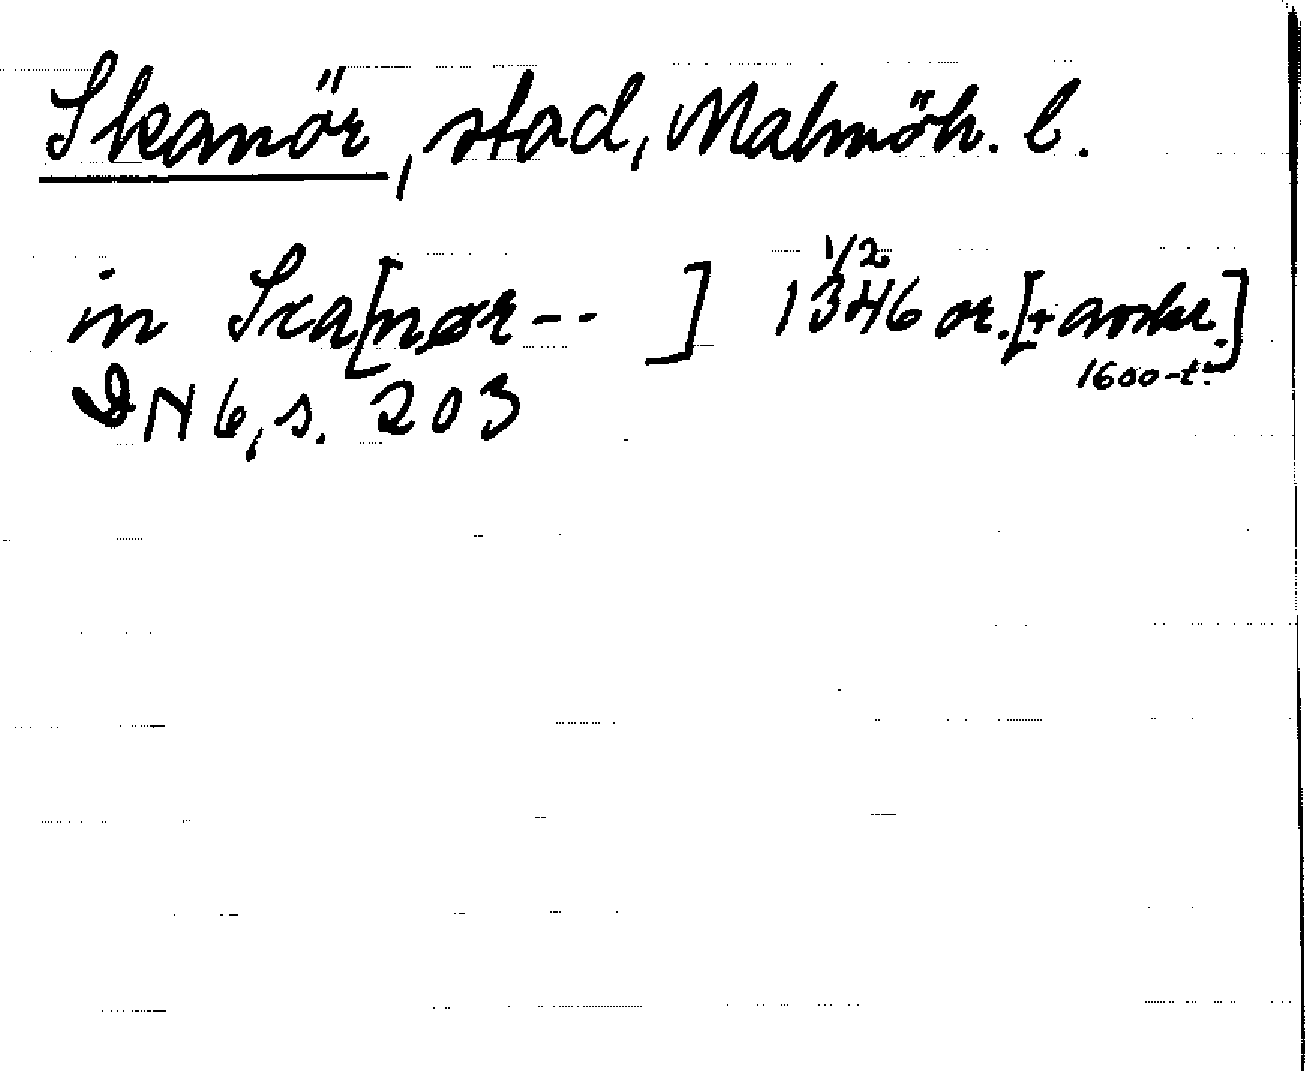 Skanör, stad, Malmöh. l.
in Sca[nør -- ] 1346 1/2 or. [+ avskr.]
1600-t.
DN 6, s. 203